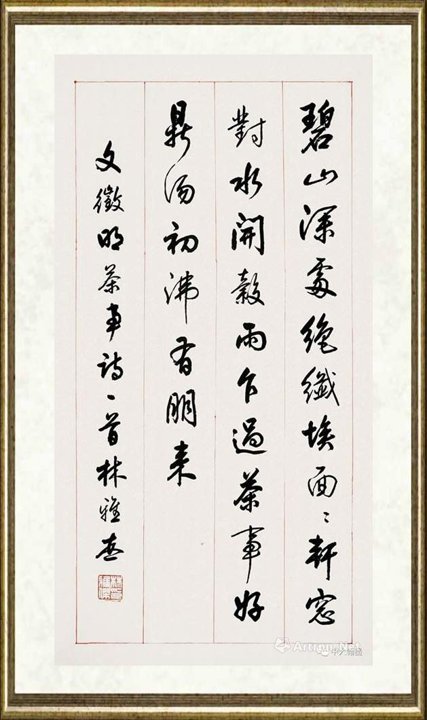 碧山深處絶纖埃面〻軒窓
對水開穀雨乍過茶事好
鼎湯初沸有朋来
文徵明茶事詩一首林雅杰
Artron.Net